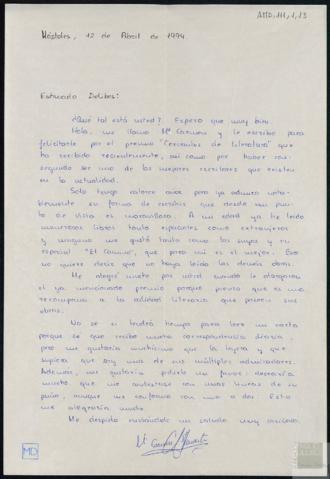 AMD, 111, 1, 13
Móstoles, 12 de Abril de 1994
Estimado Delibes:
¿Qué tal está usted? Espero que muy bien.
Hola, me llamo Mª Carmen y le escribo para
felicitarle por el premio "Cervantes de Literatura" que
ha recibido recientemente, así como por haber con-
seguido ser uno de los mejores escritores que existen
en la actualidad.
Solo tengo catorce años pero ya admiro nota-
blemente su forma de escribir que desde mi pun-
to de vista es maravillosa. A mi edad ya he leído
numerosos libros tanto españoles como extranjeros
y ninguno me gustó tanto como los suyos y en
especial "El Camino", que para mi es el mejor. Eso
no quiere decir que no haya leído los demás libros.
Me alegré mucho por usted cuando le otorgaron
el ya mencionado premio porque pienso que es una
recompensa a la calidad literaria que poseen sus
obras.
No se si tendrá tiempo para leer mi carta
porque sé que recibe mucha correspondencia diaria,
pero me gustaría muchísimo que la leyera y que
supiera que soy una de sus múltiples admiradoras.
Además, me gustaría pedirle un favor: desearía
mucho que me contestase con unas líneas de su
puño, aunque me conformo con una o dos. Esto
me alegraría mucho.
Me despido enviándole un saludo muy cariñoso.
Mª Carmen
MD